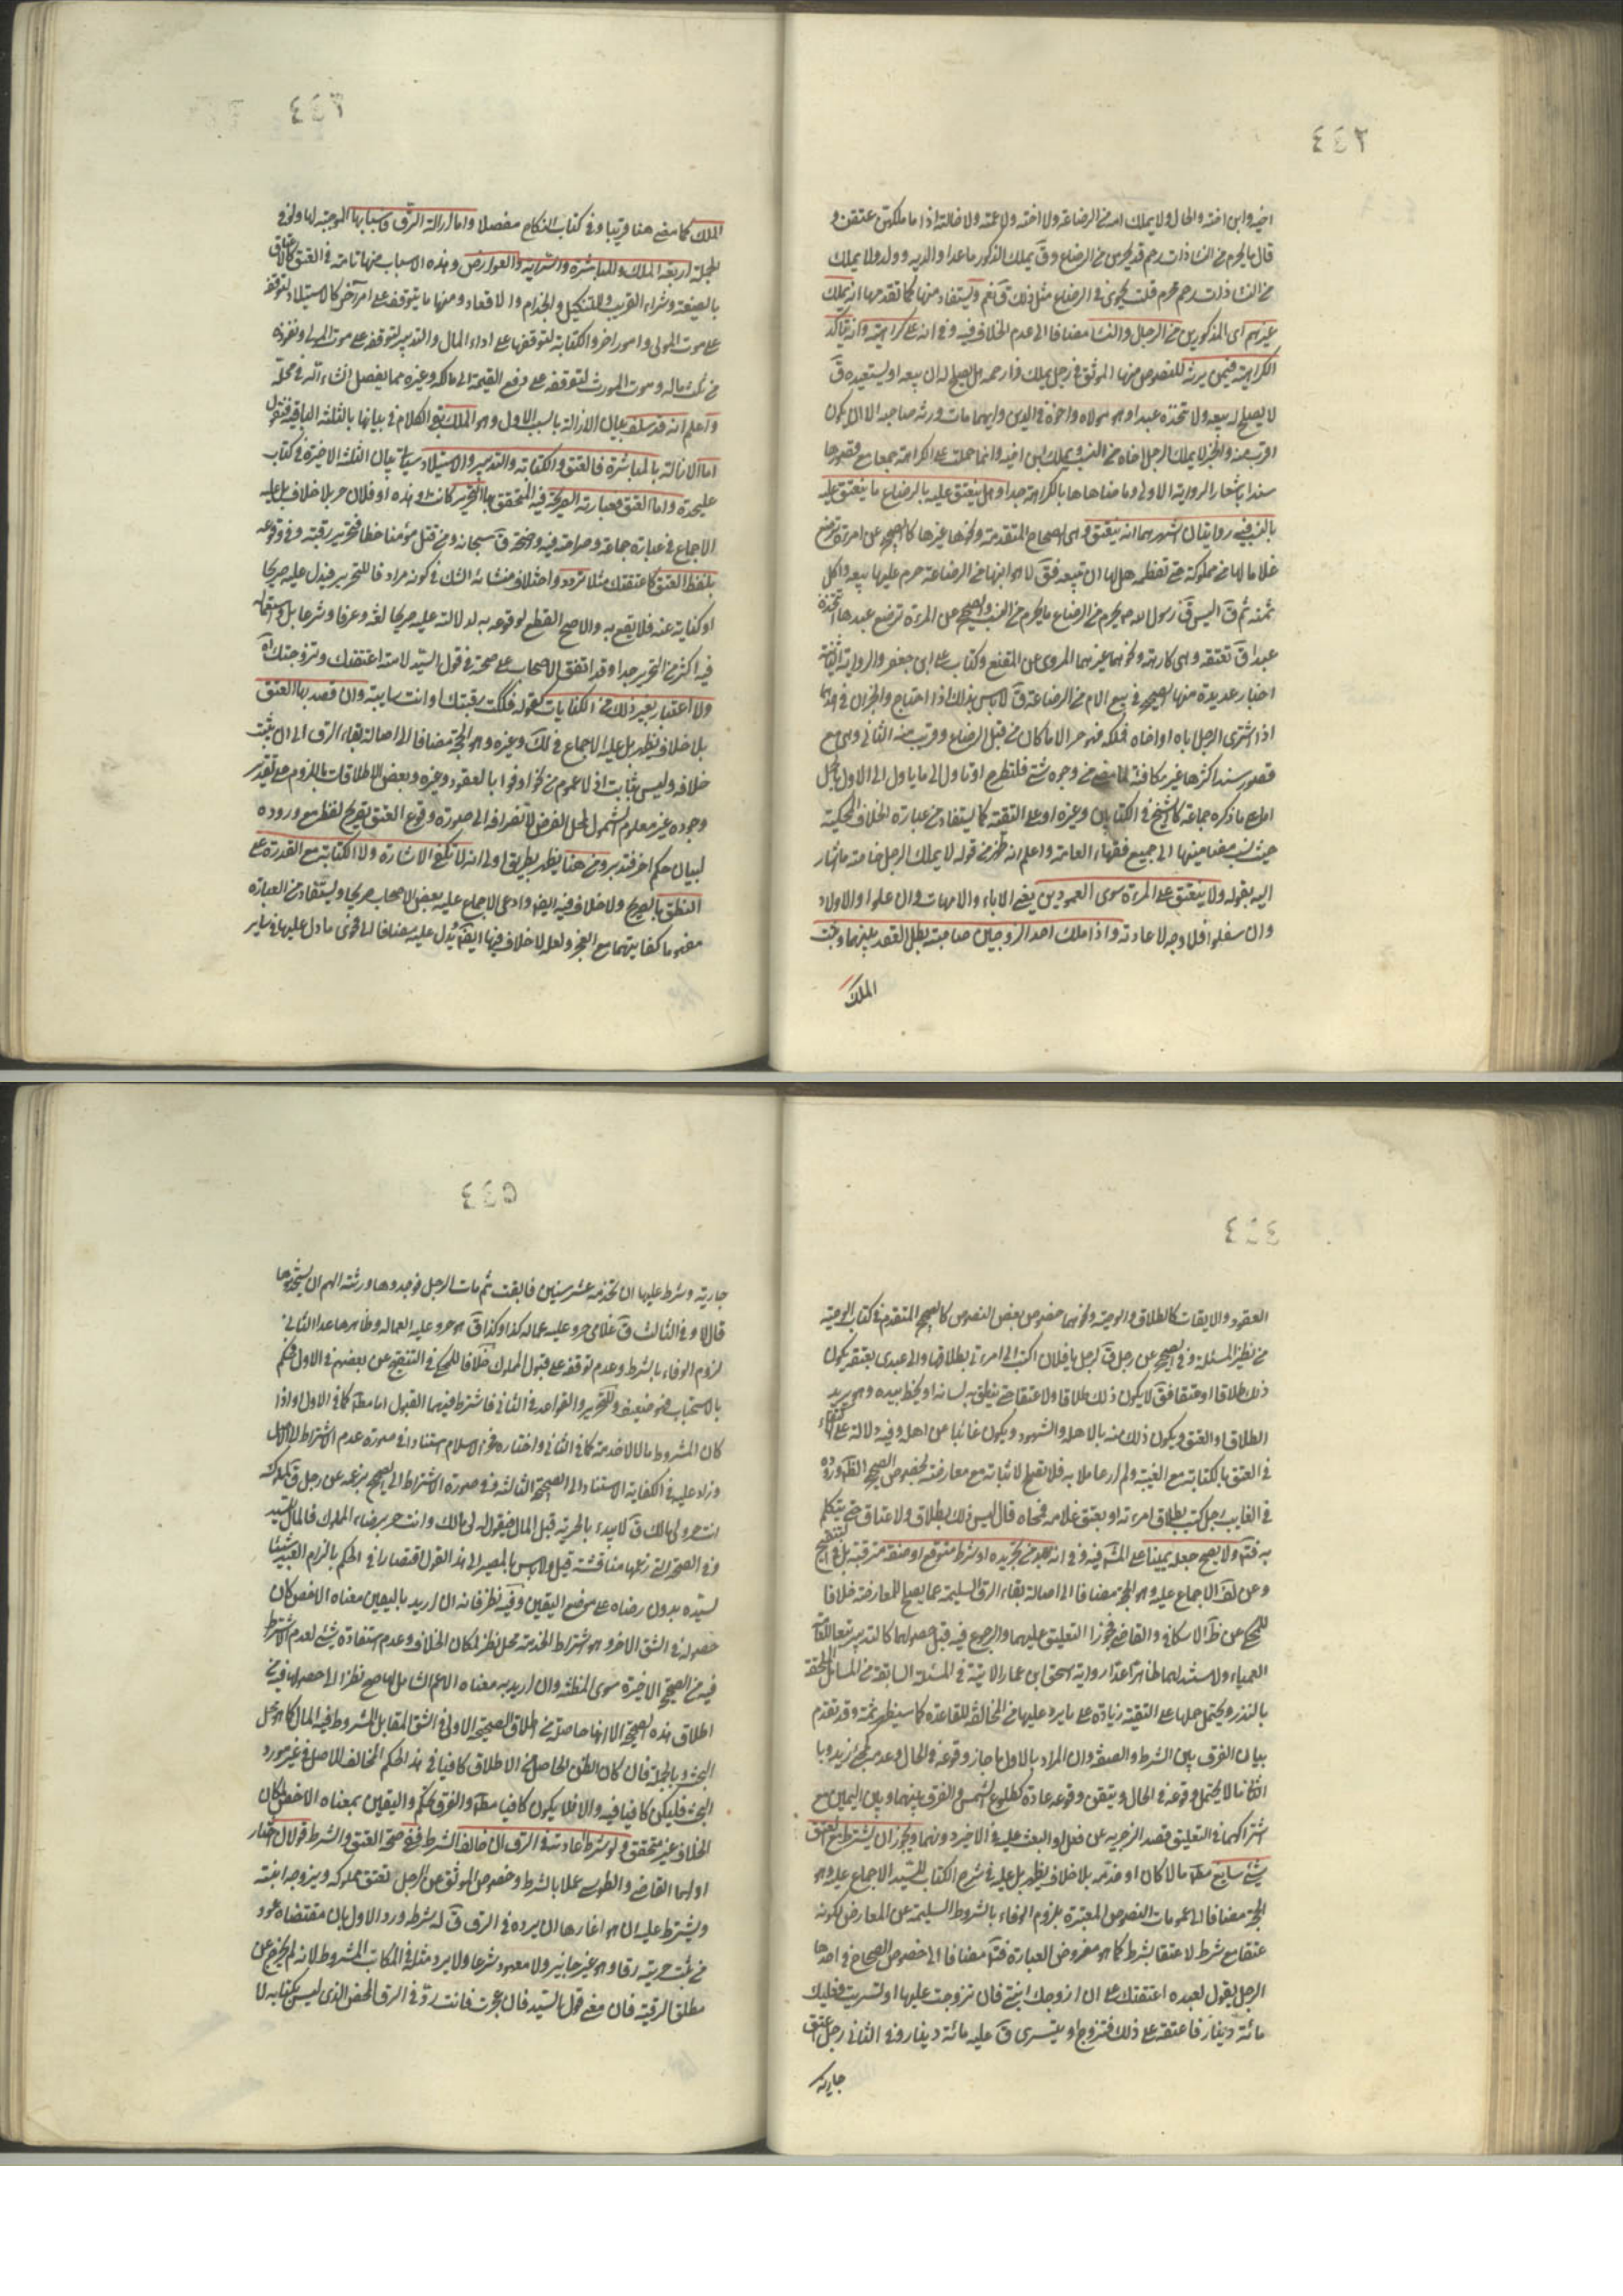 ٤٤٢
اخيه وابن اخته والخال ولا يملك امه من الرضاعة ولا اخته ولا عمته ولا خالته اذا ما ملكهن عتقن و
قال ما يحرم من النساء ذات رحم قد يحرمن من الرضاع وق يملك الذكور ما عدا والديه وولده ولا يملك
من النساء ذات رحم محرم قلت يجرى في الرضاع مثل ذلك ق نعم ويستفاد منها كما تقدمها انه يملك
غيرهم اى المذكورين من الرجل والنساء مضافا الى عدم الخلاف فيه وفي انه على كراهية وانه يتأكد
الكراهية فيمن يرثه للنصوص منها الموثق في رجل يملك ذا رحمه هل يصلح له ان يبيعه او يستعبده ق
لا يصلح له بيعه ولا يتخذه عبدا وهو مولاه واخوه في الدين وايهما مات ورثه صاحبه الا ان يكون
اقرب منه والخبر لا يملك الرجل اخاه من النسب ويملك ابن اخيه وانما حملت على الكراهة جمعا مع قصورها
سندا باشعار الرواية الاولى وما ضاهاها بالكراهة جدا وهل ينعتق عليه بالرضاع ما ينعتق عليه
بالنسب فيه روايتان اشهرهما انه ينعتق وهى الصحاح المتقدمة ونحوها غيرها كالصحيح عن امراة ترضع
غلاما لها من مملوكة حتى تفطمه هل لها ان تبيعه فق لا هو ابنها من الرضاعة حرم عليها بيعه واكل
ثمنه ثم ق اليس ق رسول الله ص يحرم من الرضاع ما يحرم من النسب والصحيح عن المراة ترضع عبدها اتتخذه
عبدا ق تعتقه وهى كارهة ونحوهما غيرهما المروى عن المقنع وكتاب على ابن جعفر والرواية الثانية
اخبار عديدة منها الصحيح في بيع الام من الرضاعة ق لا باس بذلك اذا احتاج والخبران في احدهما
اذا اشترى الرجل اباه او اخاه فملكه فهو حر الا ما كان من قبل الرضاع وقريب منه الثانى وهى مع
قصور سند اكثرها غير مكافئة لما مضى من وجوه شتى فلتطرح او تاول الى ما ياول الى الاول بحمل
على ما ذكره جماعة كالشيخ في الكتابين وغيره او على التقية كما يستفاد من عبارة الخلاف المحكية
حيث نسب مضامينها الى جميع فقهاء العامة واعلم انه ظهر من قوله لا يملك الرجل خاصة ما اشار
اليه بقوله ولا ينعتق على المراة سوى العمودين يعنى الاباء والامهات وان علوا والاولاد
وان سفلوا فلا وجه لاعادته واذا ملك احد الزوجين صاحبه بطل العقد بينهما وثبت
الملك
٤٤٣
الملك كما مضى هنا قريبا وفي كتاب النكاح مفصلا واما ازالة الرق فاسبابها الموجبة لها ولو في
الجملة اربعة الملك والمباشرة والسراية والعوارض وهذه الاسباب منها تامة في العتق كالاعتاق
بالصيغة وشراء القريب والتنكيل والجذام والاقعاد ومنها ما يتوقف على امر آخر كالاستيلاد لتوقفه
على موت المولى وامور اخر والكتابة لتوقفها على اداء المال والتدبير لتوقفه على موت المولى ونفوذه
من ثلث ماله وموت المورث لتوقفه على دفع القيمة الى مالكه وغيره مما يفصل انشاء الله في محله
واعلم انه قد سلف بيان الازالة بالسبب الاول وهو الملك بقي الكلام في بيانها بالثلثة الباقية فنقول
اما الازالة بالمباشرة فالعتق والكتابة والتدبير والاستيلاد سياتى بيان الثلثة الاخيرة في كتاب
عليحدة واما العتق فعبارته الصريحة فيه المتحقق بها التحرير كانت وهذه او فلان حر بلا خلاف بل عليه
الاجماع في عبارة جماعة وصراحته فيه واضحة ق سبحانه ومن قتل مؤمنا خطا فتحرير رقبة وفي وقوعه
بلفظ العتق كاعتقتك مثلا تردد واختلاف منشائه الشك في كونه مرادفا للتحرير فيدل عليه صريحا
او كناية عنه فلا يقع به والاصح القطع لوقوعه به لدلالته عليه صريحا لغة وعرفا وشرعا بل واستعماله
فيه اكثر من التحرير جدا وقد اتفق الاصحاب على صحته في قول السيد لامته اعتقتك وتزوجتك اه
ولا اعتبار بغير ذلك من الكنايات كقوله فككت رقبتك او انت سايبة وان قصد بها العتق
بلا خلاف يظهر بل عليه الاجماع في لك وغيره وهو الحجة مضافا الى اصالة بقاء الرق الى ان يثبت
خلافه وليس بثابت اذ لا عموم من نحو اوفوا بالعقود وغيره وبعض الاطلاقات باللزوم على تقدير
وجوده غير معلوم الشمول لمحل الفرض لانصرافه الى صورة وقوع العتق بصريح لفظ مع وروده
لبيان حكم اخر فتدبر ومن هنا يظهر بطريق اولى انه لا تكفى الاشارة ولا الكتابة مع القدرة على
النطق بالصريح ولا خلاف فيه ايضا وادعى الاجماع عليه بعض الاصحاب صريحا ويستفاد من العبارة
مفهوما كفايتهما مع العجز ولعله لا خلاف فيها ايضا يدل عليه مضافا الى فحوى ما دل عليها في ساير
٤٤٤
العقود والايقاعات كالطلاق والوصية ونحوهما خصوص بعض النصوص كالصحيح المتقدم في كتاب الوصية
من نظير المسئلة وفي الصحيح عن رجل ق لرجل يا فلان اكتب الى امراتى بطلاقها والى عبدى بعتقه يكون
ذلك طلاقا او عتقا فق لا يكون ذلك طلاقا ولا عتقا حتى ينطق به لسانه او يخط بيده وهو يريد
الطلاق او العتق ويكون ذلك منه بالاهلة والشهود ويكون غائبا عن اهله وفيه دلالة على الاكتفاء
في العتق بالكتابة مع الغيبة ولم ار عاملا به فلا يصلح لاثباته مع معارضته بخصوص الصحيح الظاهر وروده
في الغايب رجل كتب بطلاق امراته او بعتق غلامه فمحاه قال ليس ذلك بطلاق ولا عتاق حتى يتكلم
به فتم ولا يصح جعله يمينا على المشهور فيه وفي انه لا بد من تجريده او شرط متوقع او صفة مترقبة بل في الايضاح
وعن لف الاجماع عليه وهو الحجة مضافا الى اصالة بقاء الرق السليمة عما يصلح للمعارضة خلافا
للمحكى عن ظ الاسكافى والقاضى فجوزا التعليق عليهما والرجوع فيه قبل حصولهما كالتدبير
العمياء ولا مستند لهما ظاهرا عدا رواية اسحق ابن عمار الاتية في المسئلة السابقة من المسائل الملحقة
بالنذر ويحتمل حملها على التقية زيادة على ما يرد عليها من المخالفة للقاعدة كما سيظهر ثمة وقد تقدم
بيان الفرق بين الشرط والصفة وان المراد بالاول ما جاز وقوعه في الحال وعدمه كمجئ زيد وبا
الثانى ما لا يحتمل وقوعه في الحال ويتيقن وقوعه عادة كطلوع الشمس والفرق بينهما وبين اليمين مع
اشتراكهما في التعليق قصد الزجر به عن فعل او البعث عليه في الاخير دونهما ويجوز ان يشترط مع العتق
شئ سايغ مطلقا مالا كان او خدمة بلا خلاف يظهر بل عليه في شرح الكتاب للسيد الاجماع عليه وهو
الحجة مضافا الى عمومات النصوص المعتبرة بلزوم الوفاء بالشروط السليمة عن المعارض لكونه
عتقا مع شرط لا عتقا بشرط كما هو مفروض العبارة مضافا الى خصوص الصحاح في احدها
الرجل يقول لعبده اعتقتك على ان ازوجك ابنتى فان تزوجت عليها او تسريت فعليك
مائة دينار فاعتقه على ذلك فتزوج او يتسرى ق عليه مائة دينار وفي الثانى رجل اعتق
جاريته
٤٤٥
جاريته وشرط عليها ان تخدمه عشر سنين فابقت ثم مات الرجل فوجدوها ورثته الهم ان يستخدموها
قال لا وفي الثالث ق غلامى حر وعليه عمالة كذا وكذا ق هو حر وعليه العمالة وظاهرها عدا الثانى
لزوم الوفاء بالشرط وعدم توقفه على قبول المملوك خلافا للمحكى في التنقيح عن بعضهم في الاول فحكم
بالاستحباب فهو ضعيف وللتحرير والقواعد في الثانى فاشترط فيهما القبول اما مطلقا كما في الاول او اذا
كان المشروط مالا لا خدمة كما في الثانى واختاره فخر الاسلام استنادا في صورة عدم الاشتراط الى الاصل
وزاد عليه في الكفاية الاستناد الى الصحيحة الثالثة وفي صورة الاشتراط الى الصحيح بزعمه عن رجل ق لمملوكه
انت حر ولى مالك ق لا يبدء بالحرية قبل المال فيقول له لى مالك وانت حر برضاء المملوك فالمال للسيد
وفي الصحة التى زعمها مناقشة قيل ولا باس بالمصير الى هذا القول اقتصارا في الحكم بالزام العبد شيئا
لسيده بدون رضاه على موضع اليقين وفيه نظر فانه ان اريد باليقين معناه الاخص كان
حصوله في الشق الاخر وهو اشتراط الخدمة محل نظر لمكان الخلاف وعدم استفادة شئ لعدم الاشتراط
فيه من الصحيح الاخيرة سوى المظنة وان اريد به معناه الاعم الشامل لها صح نظرا الى حصولها فيه من
اطلاق هذه الصحيحة الا انها حاصلة من اطلاق الصحيحة الاولى في الشق المقابل المشروط فيه المال كما هو محل
البحث وبالجملة فان كان الظن الحاصل من الاطلاق كافيا في هذا الحكم المخالف للاصل في غير مورد
البحث فليكن كافيا فيه والا فلا يكون كافيا مطلقا والفرق تحكم واليقين بمعناه الاخص لمكان
الخلاف غير متحقق ولو شرط اعادته في الرق ان خالف الشرط ففي صحة العتق والشرط قولان اختار
اولهما القاضى والطوسى عملا بالشرط وخصوص الموثق عن الرجل يعتق مملوكه ويزوجه ابنته
ويشترط عليه ان هو اغارها ان يرده في الرق ق له شرطه ورد الاول بان مقتضاه عود
من ثبت حريته رقا وهو غير جايز ولا معهود شرعا ولا يرد مثله في المكاتب المشروط لانه لم يخرج عن
مطلق الرقية فان معنى قول السيد فان عجزت فانت رد في الرق المحض الذى ليس بكتابة لا